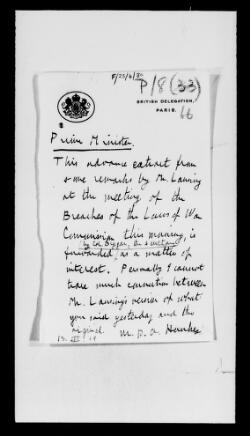 F/23/4/30
P/8(33)
BRITISH DELEGATION,
PARIS.
66
Prime Minister.
This advance extract from
some remarks by Mr. Lansing
at the meeting of the
Breaches of the Laws of War
Commission this morning, is
forwarded as a matter of
interest. Personally I cannot
trace much connection between
Mr. Lansing's version of what
you said yesterday and the
original. M. P. A. Hankey
13. III. 19